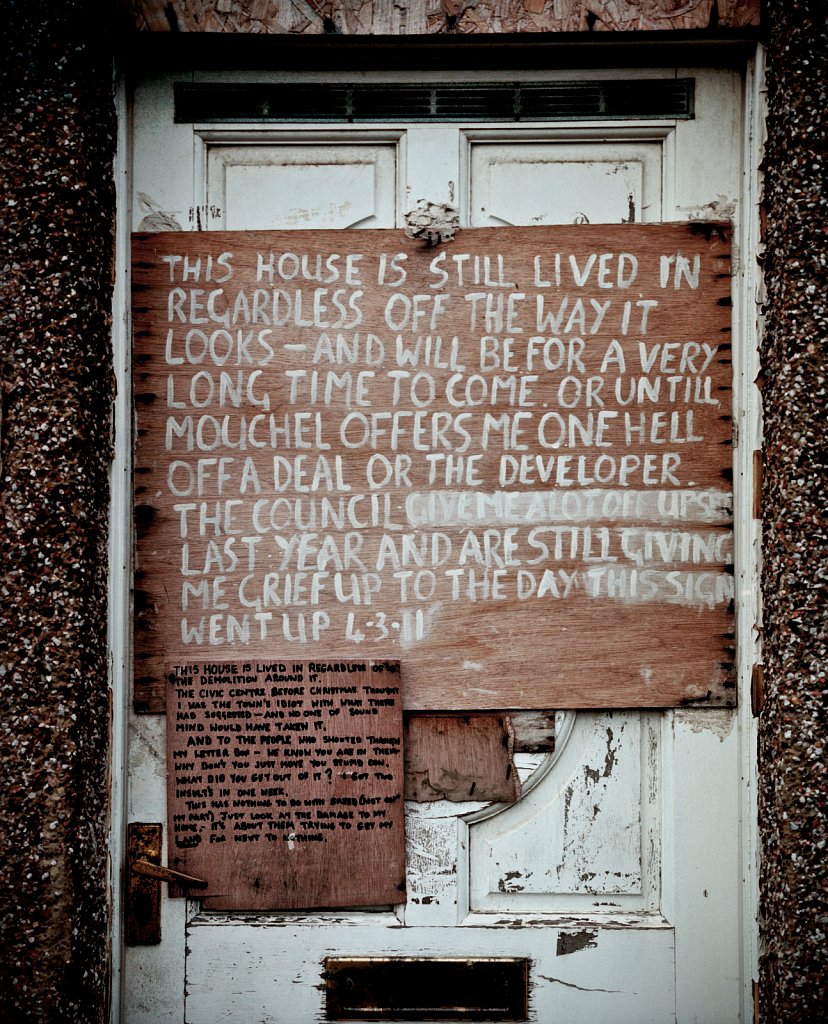 THIS HOUSE IS STILL LIVED IN
REGARDLESS OFF THE WAY IT
LOOKS - AND WILL BE FOR A VERY
LONG TIME TO COME. OR UNTILL
MOUCHEL OFFERS ME ONE HELL
OFF A DEAL OR THE DEVELOPER.
THE COUNCIL GIVE ME A LOT OFF UPSET
LAST YEAR AND ARE STILL GIVING
ME GRIEF UP TO THE DAY THIS SIGN
WENT UP 4-3-11
THIS HOUSE IS LIVED IN REGARDLESS OF
THE DEMOLITION AROUND IT.
THE CIVIC CENTRE BEFORE CHRISTMAS THOUGHT
I WAS THE TOWN'S IDIOT WITH WHAT THERE
HAD SUGGESTED - AND NO ONE OF SOUND
MIND WOULD HAVE TAKEN IT.
AND TO THE PEOPLE WHO SHOUTED THROUGH
MY LETTER BOX - WE KNOW YOU ARE IN THERE
WHY DON'T YOU JUST MOVE YOU STUPID COW.
WHAT DID YOU GET OUT OF IT? GOT TWO
INSULTS IN ONE WEEK.
THIS HAS NOTHING TO DO WITH GREED (NOT ON
MY PART) JUST LOOK AT THE DAMAGE TO MY
HOME - IT'S ABOUT THEM TRYING TO GET MY
LAND FOR NEXT TO NOTHING.